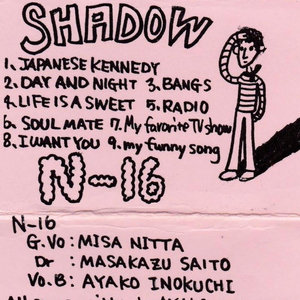 SHADOW
1. JAPANESE KENNEDY
2. DAY AND NIGHT 3. BANGS
4. LIFE IS A SWEET 5. RADIO
6. SOUL MATE 7. My favorite TV show
8. I WANT YOU 9. my funny song
N-16
N-16
G.Vo: MISA NITTA
Dr : MASAKAZU SAITO
Vo.B: AYAKO INOKUCHI